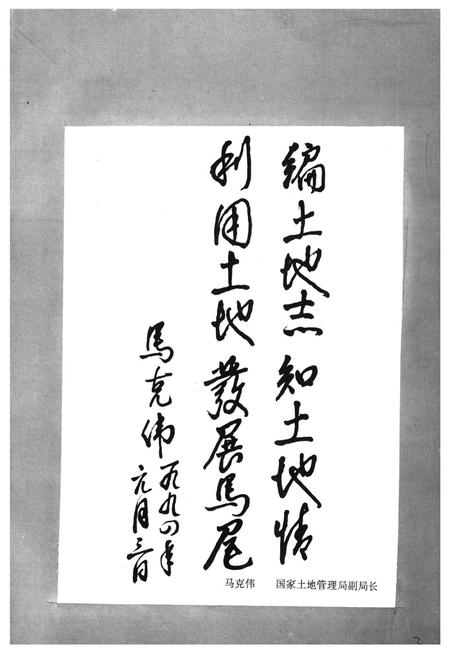 编土地志知土地情
利用土地發展馬尾
馬克伟
一九九四年
元月三日
马克伟 国家土地管理局副局长